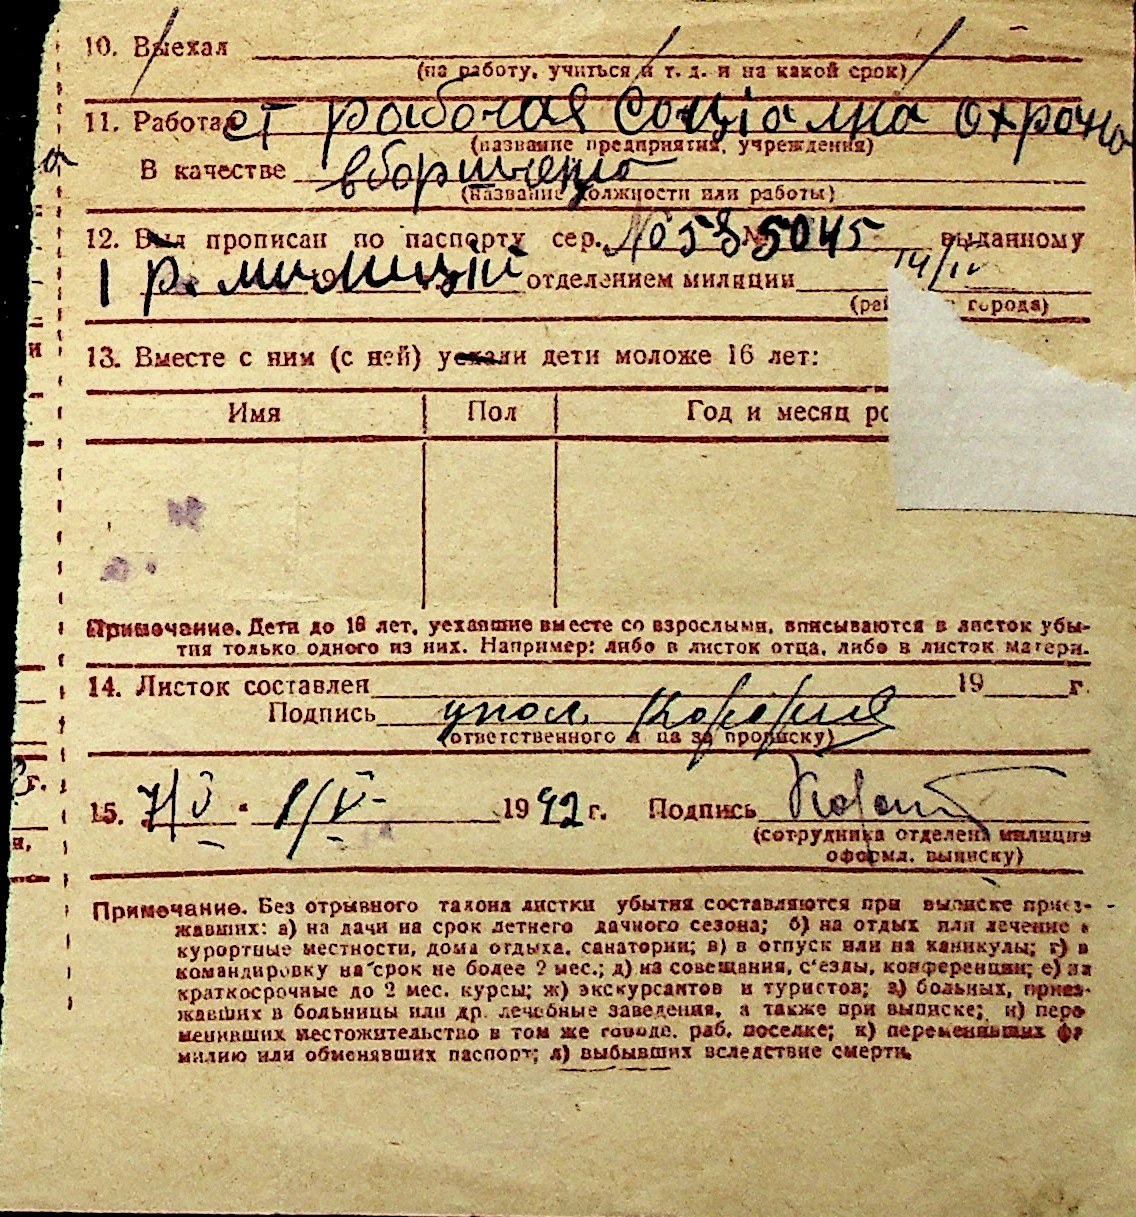 10. Выехал
(на работу, учиться и т. д. и на какой срок)
11. Работал ст рабочая Соціална охрана
(название предприятия, учреждения)
В качестве вборщецо
(название должности или работы)
12. Был прописан по паспорту сер. No 53 № 5045 выданному
1 р. милиции отделением милиции 14/IV
(рай города)
13. Вместе с ним (с ней) уехали дети моложе 16 лет:
Имя Пол Год и месяц ро
Примечание. Дети до 16 лет, уехавшие вместе со взрослыми, вписываются в листок убы-
тия только одного из них. Например: либо в листок отца, либо в листок матери.
14. Листок составлен 19 г.
Подпись упол.
(ответственного л ца за прописку)
15. 7/V 1/V- 1942 г. Подпись
(сотрудника отделен. милиции
оформл. выписку)
Примечание. Без отрывного талона листки убытия составляются при выписке приез-
жавших: а) на дачи на срок летнего дачного сезона; б) на отдых или лечение в
курортные местности, дома отдыха, санатории; в) в отпуск или на каникулы; г) в
командировку на срок не более 2 мес.; д) на совещания, с'езды, конференции; е) на
краткосрочные до 2 мес. курсы; ж) экскурсантов и туристов; з) больных, приез-
жавших в больницы или др. лечебные заведения, а также при выписке; и) пере
менивших местожительство в том же городе, раб. поселке; к) переменивших фа
милию или обменявших паспорт; л) выбывших вследствие смерти.